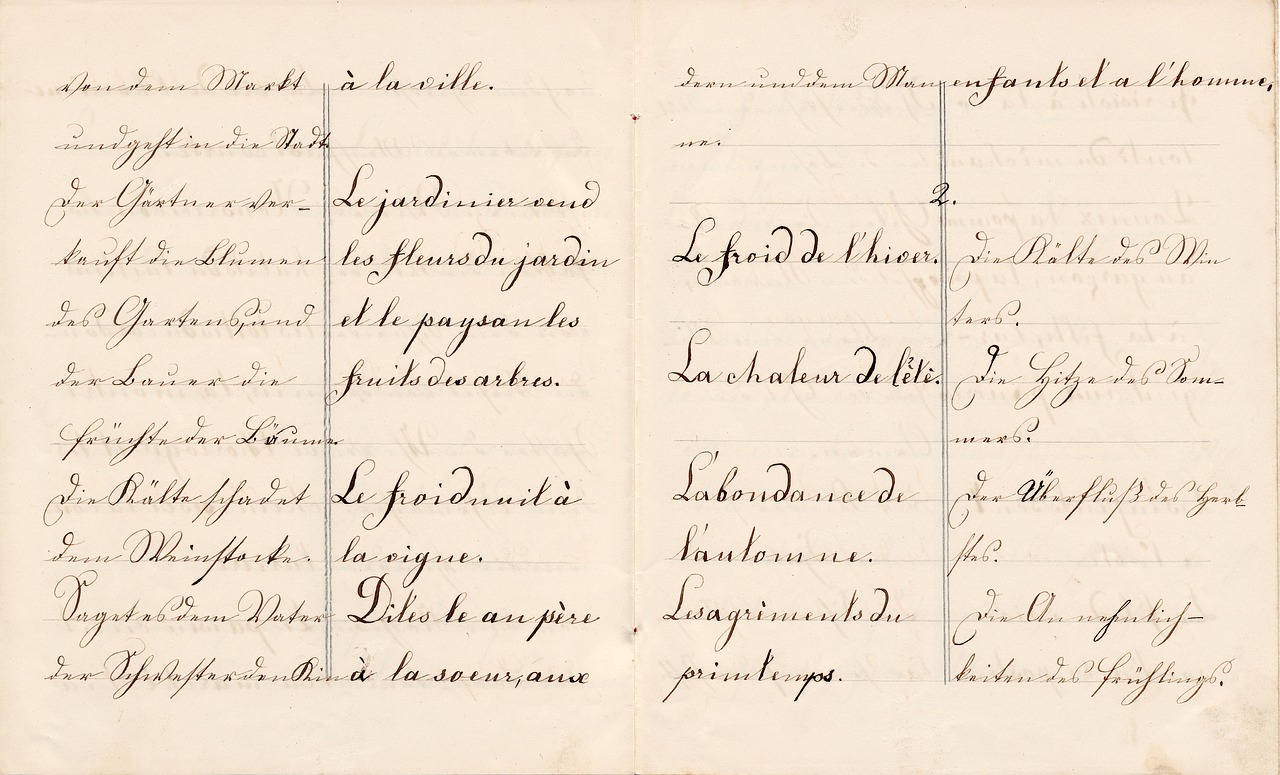 von dem Markt
und geht in die Stadt
Der Gärtner ver-
kauft die Blumen
des Gartens, und
der Bauer die
Früchte der Bäume.
Die Kälte schadet
dem Weinstocke.
Saget es dem Vater
der Schwester den Kin
à la ville.
Le jardinier vend
les fleurs du jardin
et le paysan les
fruits des arbres.
Le froid nuit à
la vigne.
Dites le au père
à la soeur, aux
dern und dem Man
ne.
enfants et a l'homme.
2.
Le froid de l'hiver.
La chaleur de l'étè.
L'abondance de
l'automne.
Les agrèments du
printemps.
Die Kälte des Win
ters.
Die Hitze des Som-
mers.
Der Überfluß des Herb-
stes.
Die Annehmlich-
keiten des Frühlings.